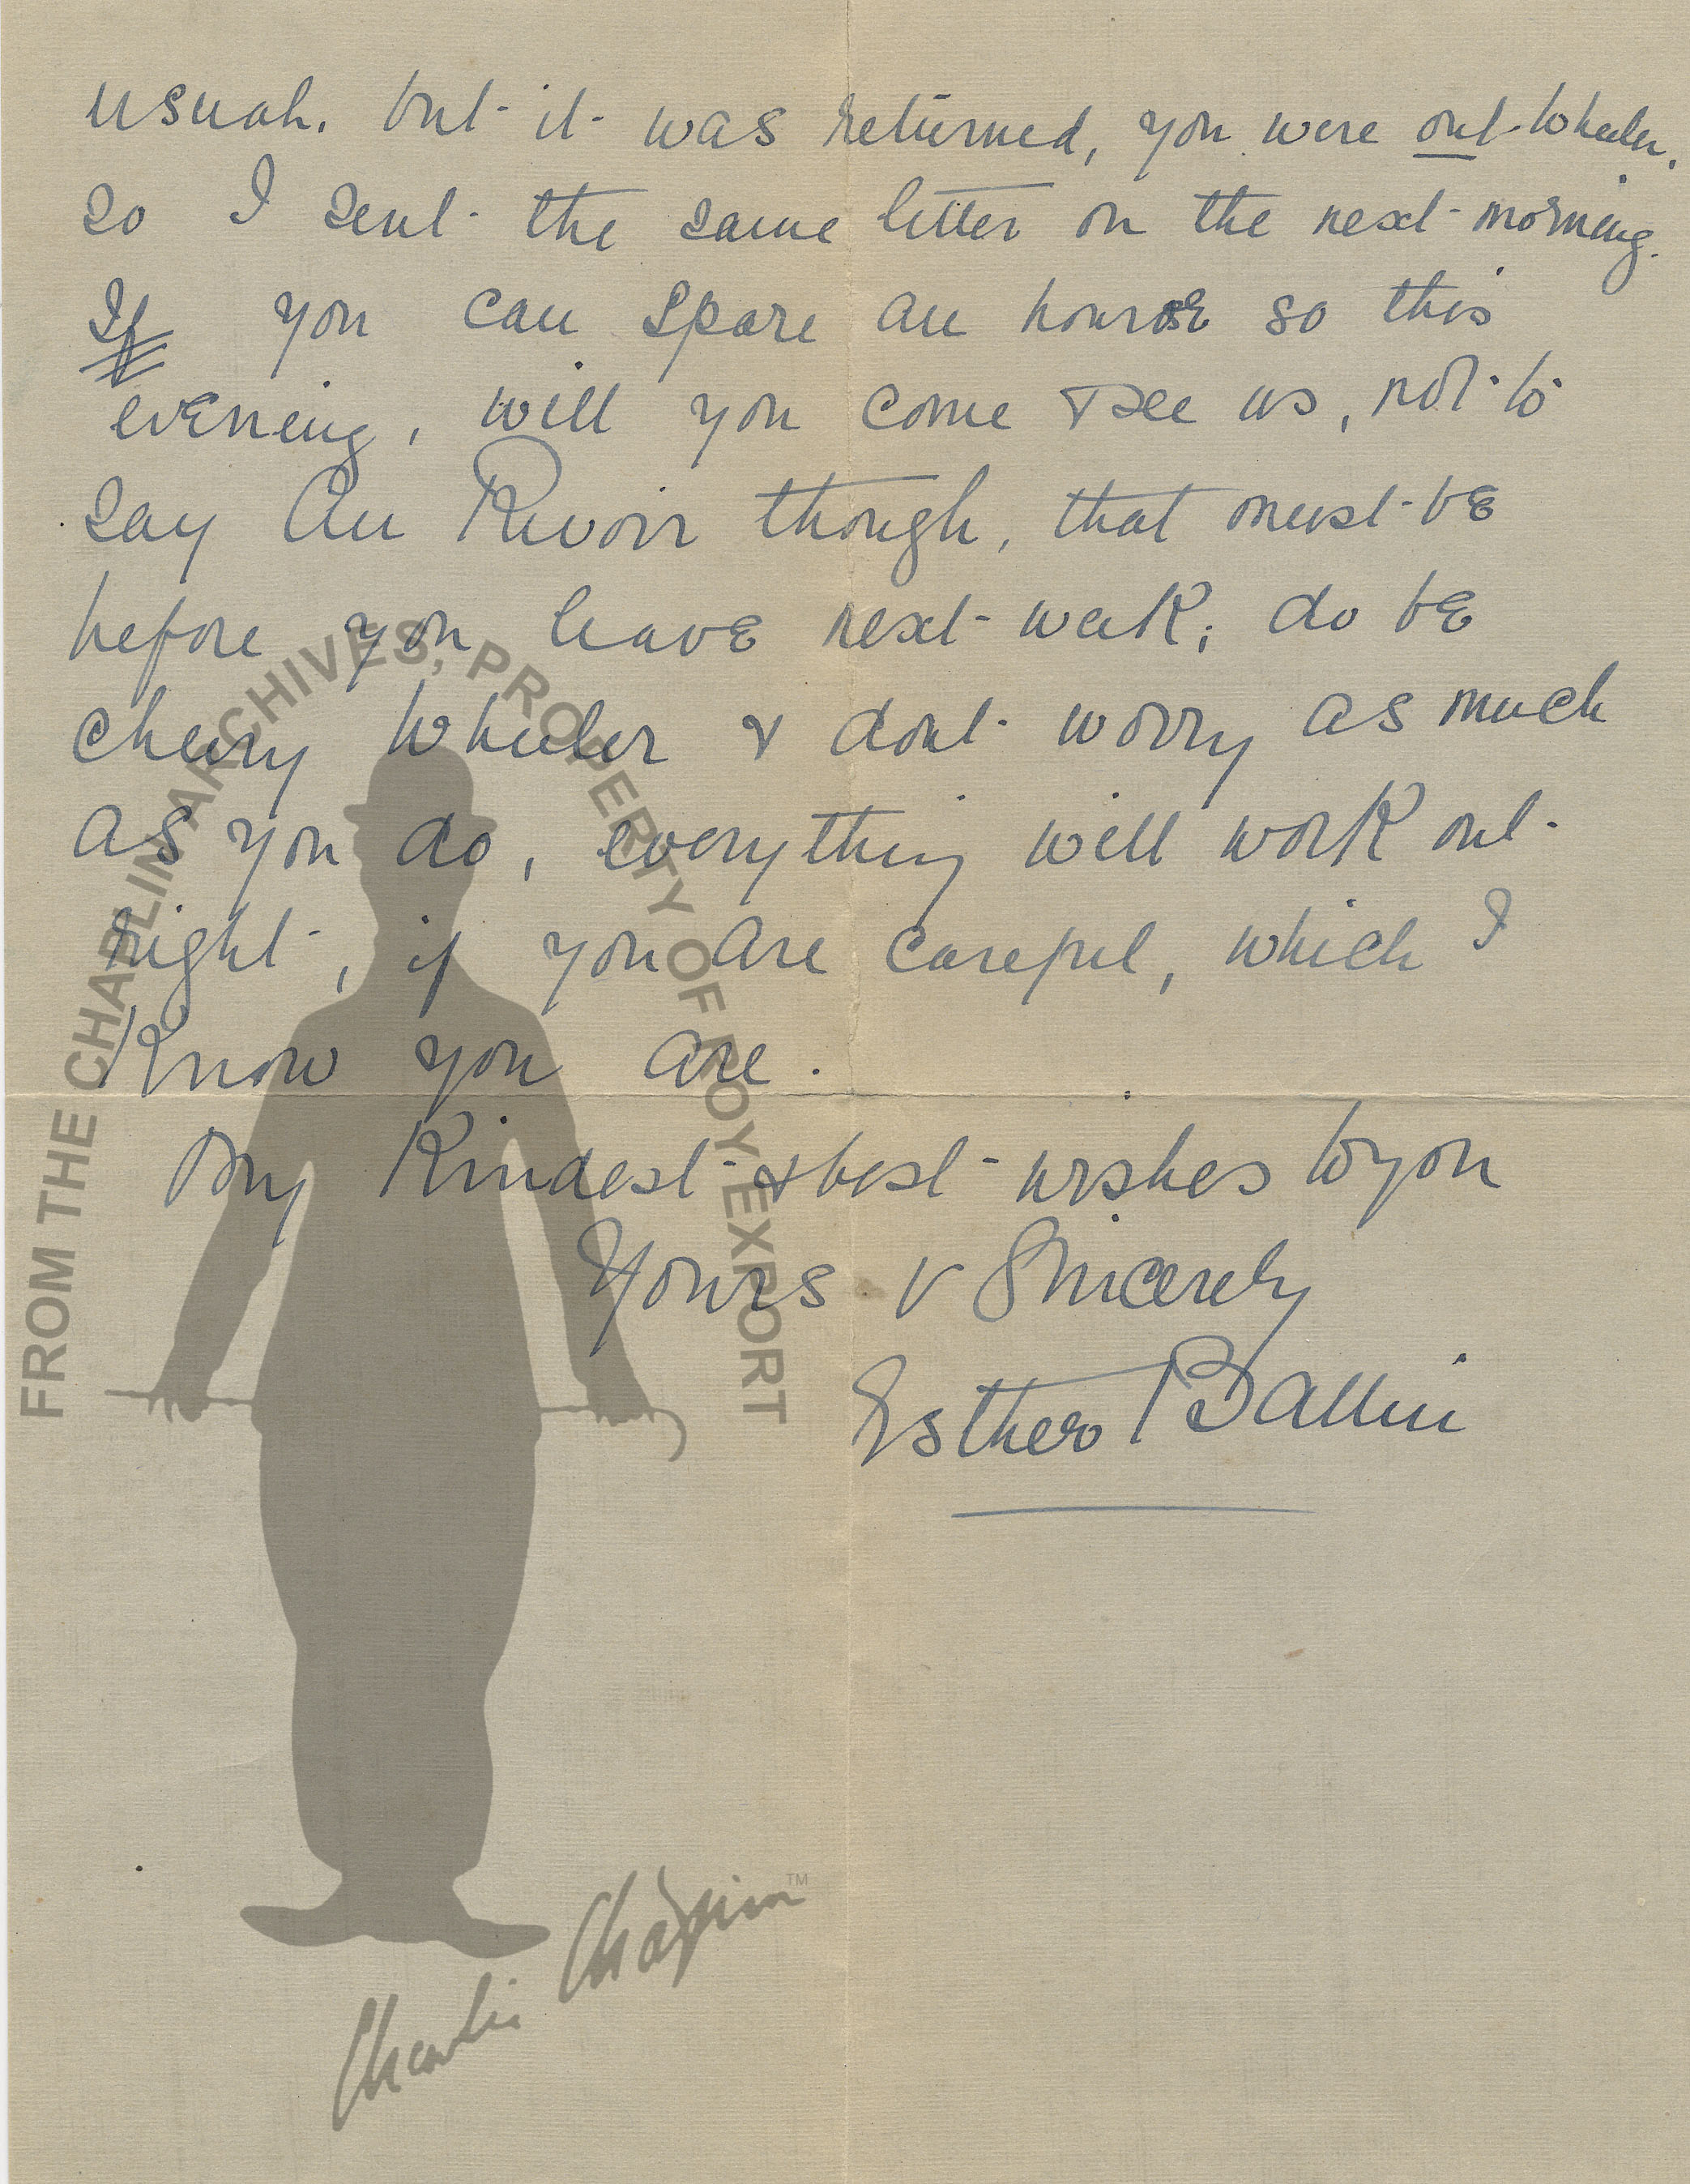 usual. but it was returned, you were out Wheeler,
so I sent the same letter on the next morning.
If you can spare an hour or so this
evening, will you come & see us, not to
say Au Revoir though, that must be
before you leave next week; do be
cheery Wheeler & dont worry as much
as you do, everything will work out
right, if you are careful, which I
Know you are.
My Kindest & best wishes to you
Yours v Sincerely
Esther Ballin
FROM THE CHAPLIN ARCHIVES, PROPERTY OF ROY EXPORT
Charlie Chaplin TM